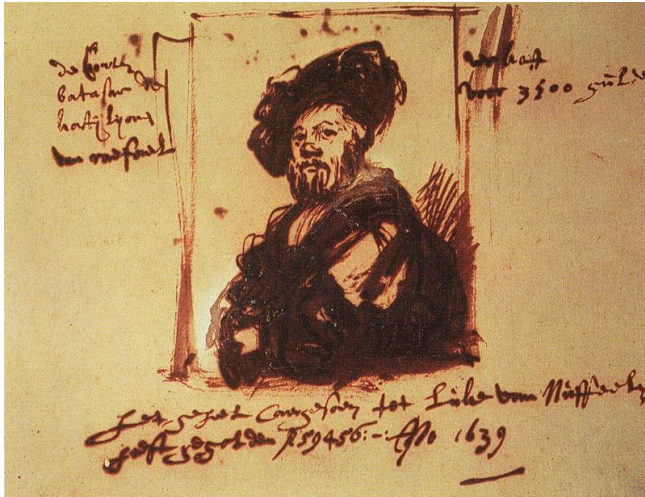 de Conte
batasar de
kastijlyone
van rafael
verkoft
voor 3500 gulden
het geheel Caergesoen tot Luke van Nuffeelen
heeft gegolden f 59456:- Ao 1639